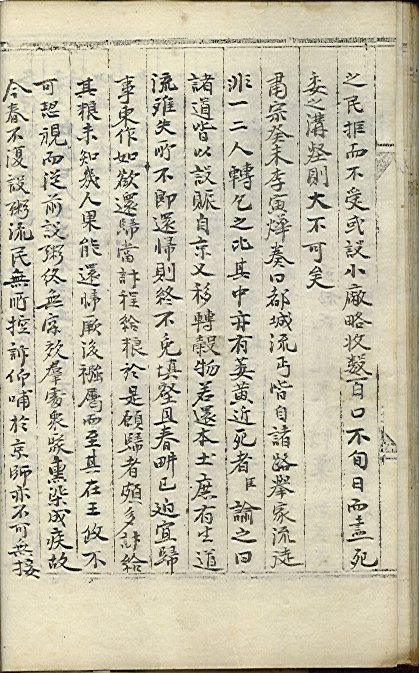 之民拒而不受或設小廠略收數百口不旬日而盡死
委之溝壑則大不可矣
肅宗癸未李寅燁奏曰都城流丐皆自諸路擧家流徙
非一二人轉乞之比其中亦有萎黃近死者臣論之曰
諸道皆以設賑自京又移轉穀物若還本土庶有生道
流離失所不卽還歸則終不免塡壑且春畊已迫宜歸
事東作如欲還歸當計程給粮於是願歸者頗多計給
其粮未知幾人果能還歸厥後襁屬而至其在王政不
可恝視而從前設粥終無實效羣處衆聚熏染成疾故
今春不復設粥流民無所控訴仰哺於京師亦不可無接